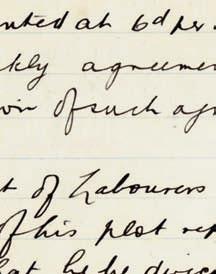 nted at 6d per
kly agreemen
of such agr
t of Labourers
of his plot rep
hat he be